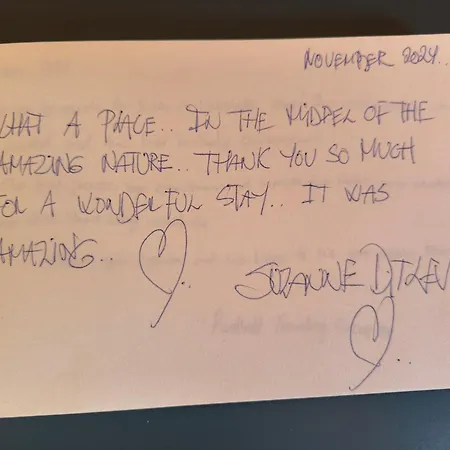 NOVEMBER 2024..
WHAT A PLACE.. IN THE MIDDEL OF THE
AMAZING NATURE.. THANK YOU SO MUCH
FOR A WONDERFUL STAY.. IT WAS
AMAZING..
SUZANNE DITLEV